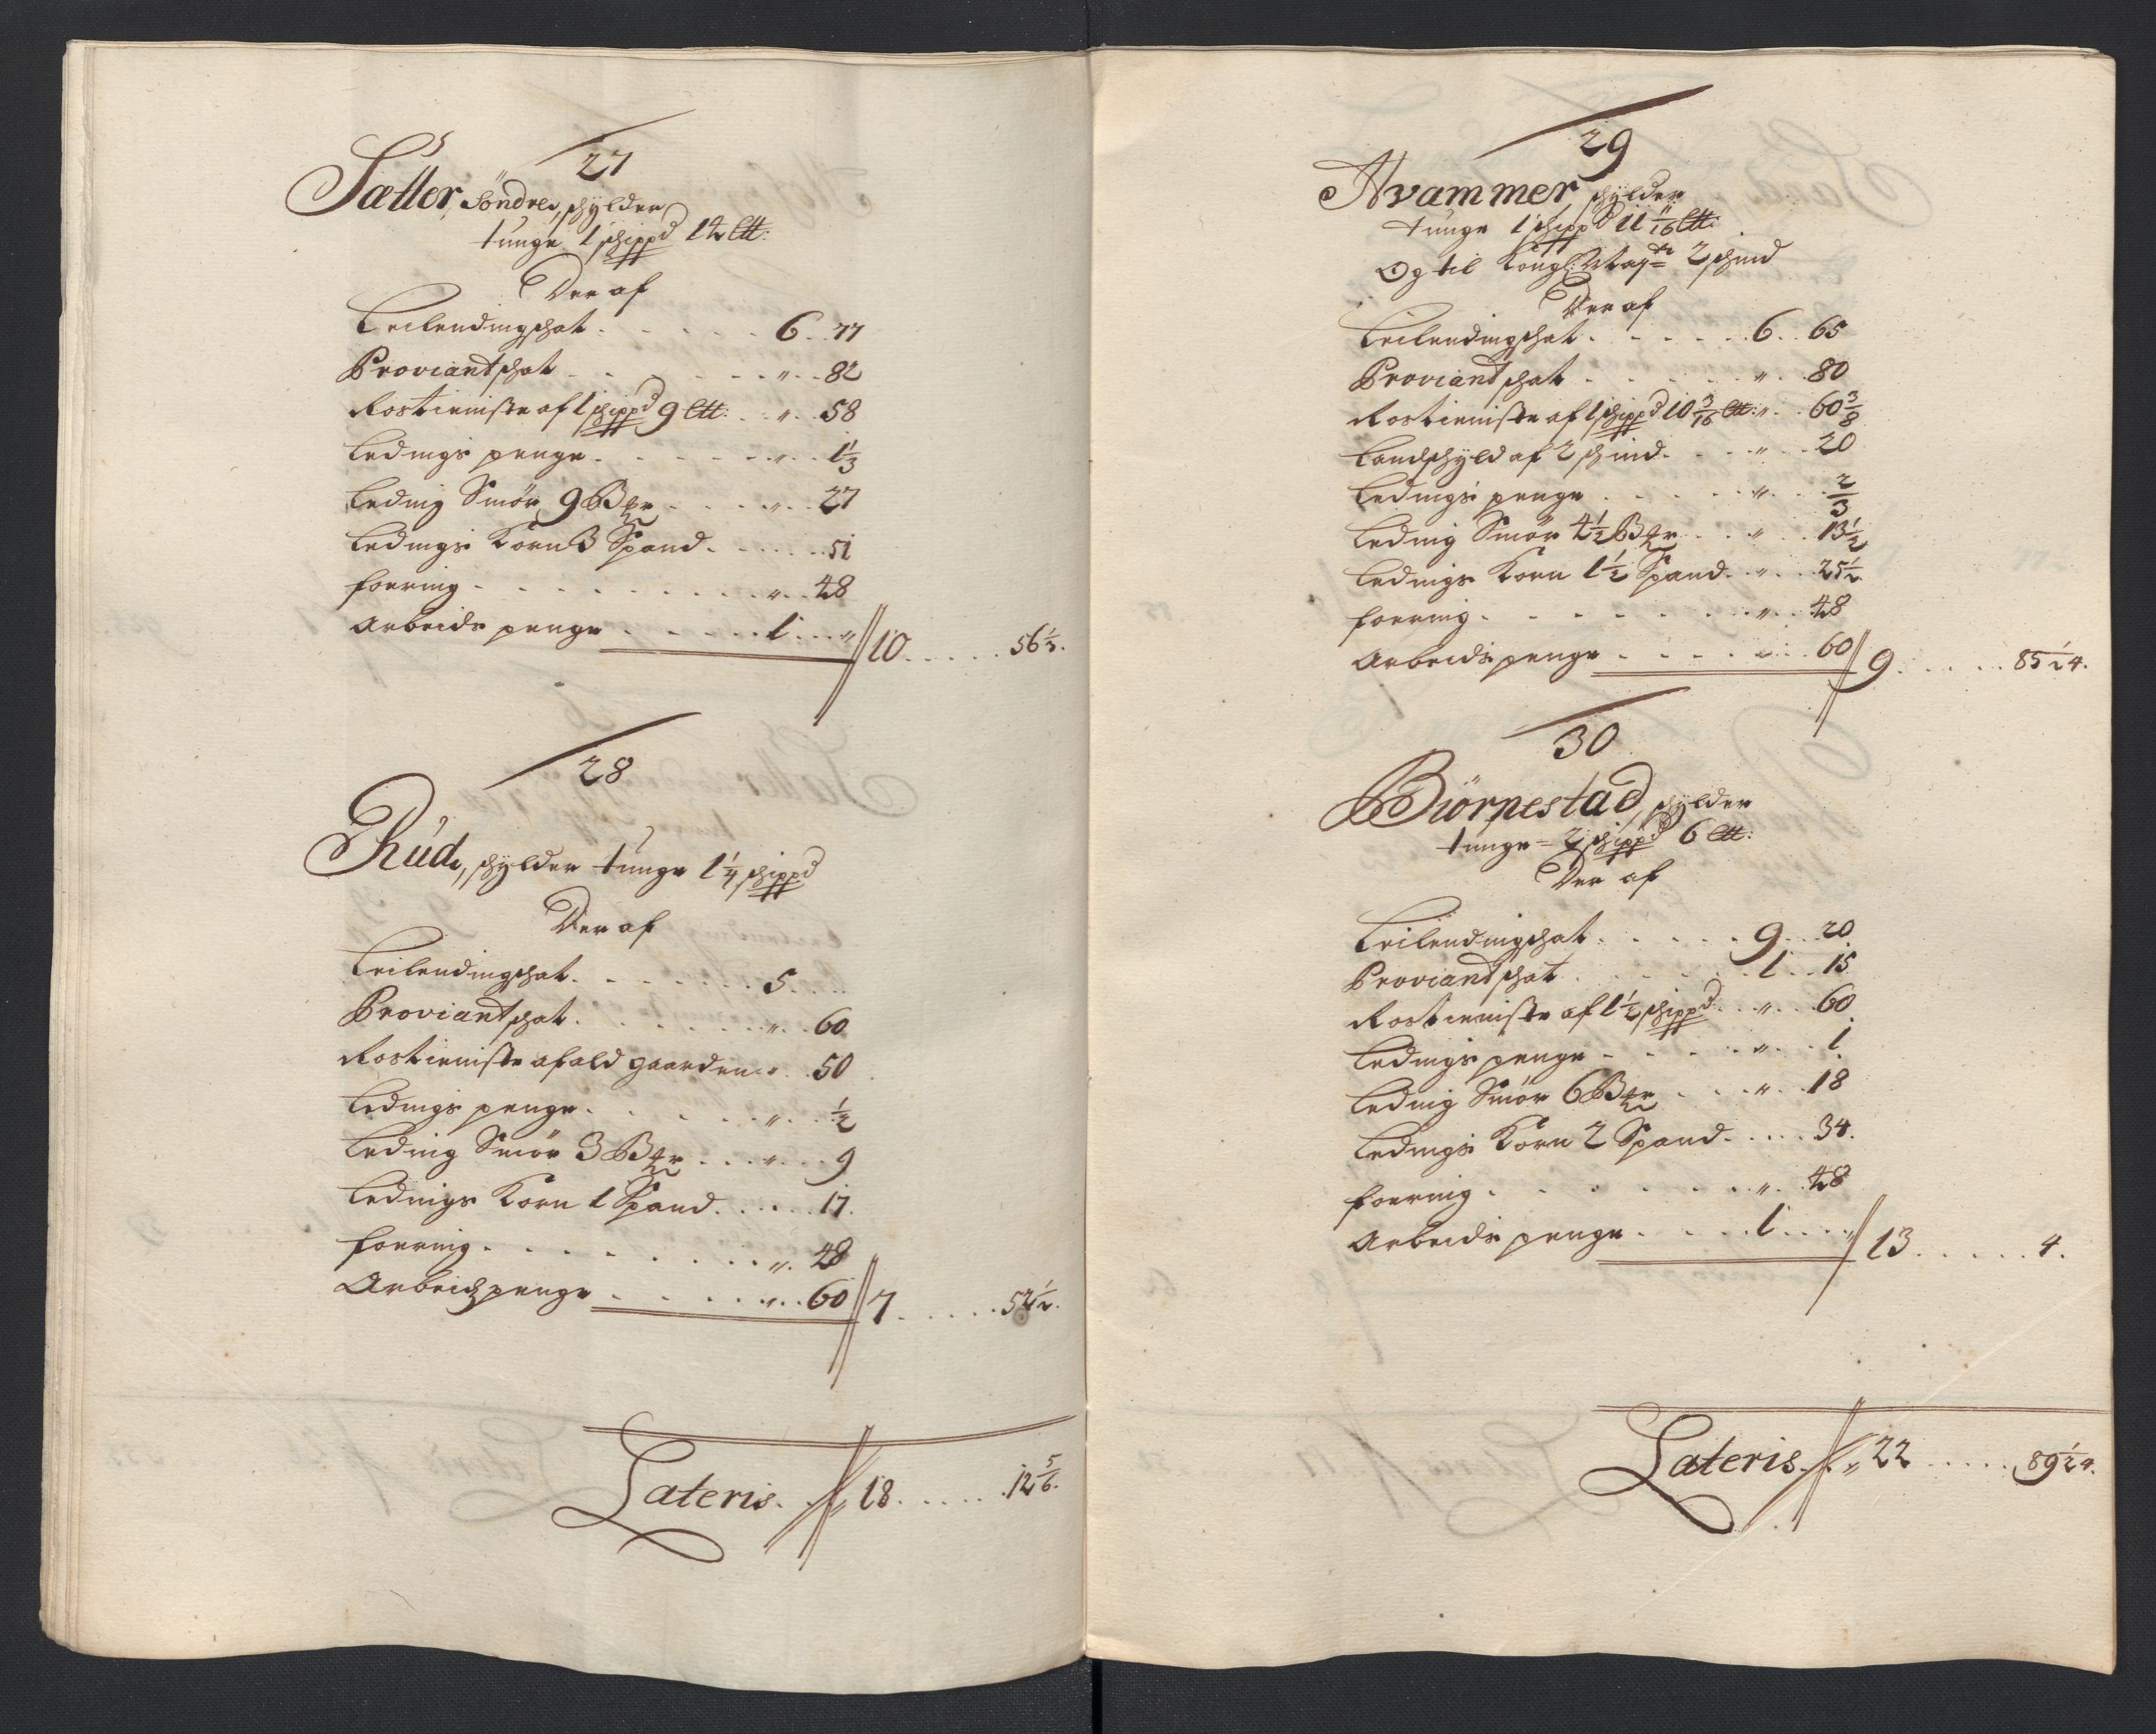 27
Sætter Söndre, schylder
tunge 1 schippd 12 ltt:
Der af
Leilendingschat . . . . . 6 . . 77
Proviantschat . . . . . " . . 82
Rostieniste af 1 schippd 9 ltt: . . " . . 58
Ledings penge . . . . . " . . 1 1/3
Leding Smör 9 Bpr . . . . " . . 27
Ledings Korn 3 Spand . . . . . 51
foering . . . . . . . " . . 48
Arbeids penge . . . . . 1 . . " // 10 . . . . . 56 1/3.
28
Rud, schylder tunge 1 1/4 schippd
Der af
Leilendingschat . . . . . 5 . . .
Proviantschat . . . . . " . . 60
Rostieniste af ald gaarden . " . . 50
Ledings penge . . . . . " . . 1/2
Leding Smör 3 Bpr . . . " . . 9
Ledings Korn 1 Spand . . . . . 17.
foering . . . . . . . " . 48
Arbeidspenge . . . . . " . . 60 // 7 . . . . . 52 1/2.
Lateris . . // 18 . . . . . 12 5/6.
29
Hvammer, schylder
tunge 1 schippd 11 11/16 ltt:
Og til Kongl: Mayts 2 schind
Der af
Leilendingschat . . . . . 6 . . 65
Proviantschat . . . . . " . . 80
Rostieniste af 1 schippd 10 3/16 ltt: " . . 60 3/8
Landschyld af 2 schind . . . " . . 20
Ledings penge . . . . . " . . 2/3
Leding Smör 4 1/2 Bpr . . " . . 13 1/2
Ledings Korn 1 1/2 Spand . . " . . 25 1/2.
foering . . . . . . . " . . 48
Arbeids penge . . . . . . . 60 // 9 . . . . . 85 1/24.
30
Biörnestad, schylder
tunge = 2 schippd 6 ltt:
Der af
Leilendingschat . . . . . 9 . . 20.
Proviantschat . . . . . 1 . . 15
Rostieniste af 1 1/2 schippd . . " . . 60
Ledings penge . . . . . " . . 1.
Leding Smör 6 Bpr . . . " . . 18
Ledings Korn 2 Spand . . . . 34.
foering . . . . . . . " . . 48
Arbeids penge . . . . 1 . . . " // 13 . . . . . 4.
Lateris . // " 22 . . . . . 89 1/24.